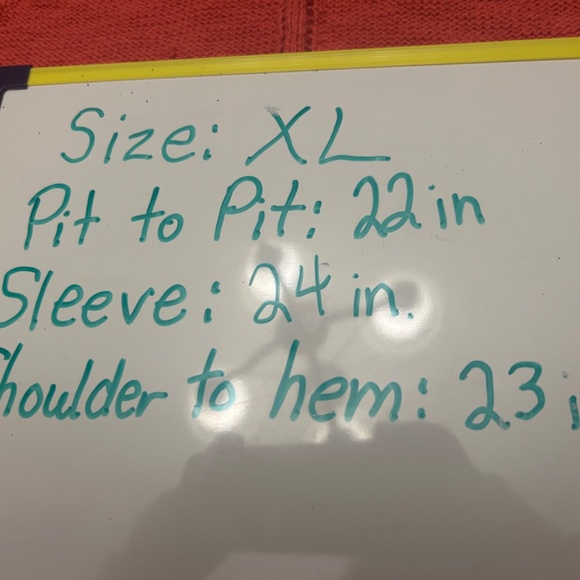 Size: XL
Pit to Pit: 22 in
Sleeve: 24 in.
Shoulder to hem: 23 i